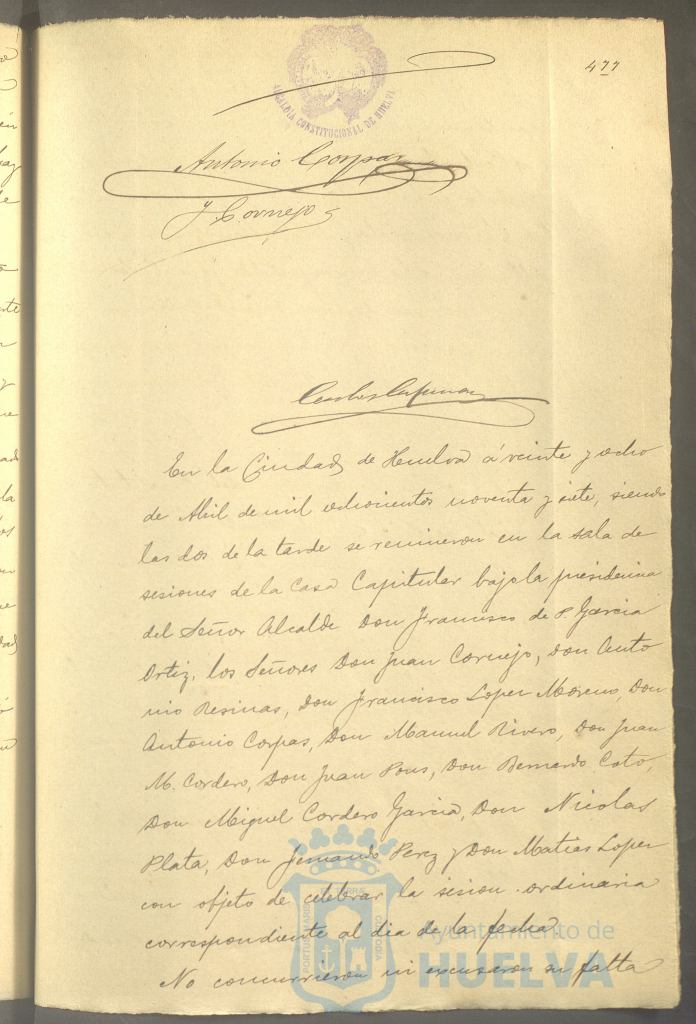 477
ALCALDIA CONSTITUCIONAL DE HUELVA
Antonio Corpas
J. Cornejo
En la Ciudad de Huelva á veinte y ocho
de Abril de mil ochocientos noventa y siete, siendo
las dos de la tarde se reunieron en la sala de
sesiones de la Casa Capitular bajo la presidencia
del Señor Alcalde Don Francisco de P. Garcia
Ortiz, los Señores Don Juan Cornejo, Don Anto
nio Resinas, Don Francisco Lopez Moreno, Don
Antonio Corpas, Don Manuel Rivero, Don Juan
M. Cordero, Don Juan Pons, Don Bernardo Coto,
Don Miguel Cordero Garcia, Don Nicolas
Plata, Don Fernando Perez y Don Matias Lopez
con objeto de celebrar la sesion ordinaria
correspondiente al dia de la fecha
No concurrieron ni excusaron su falta
PORTUS MARIS ET TERRAE CUSTODIA
Ayuntamiento de
HUELVA